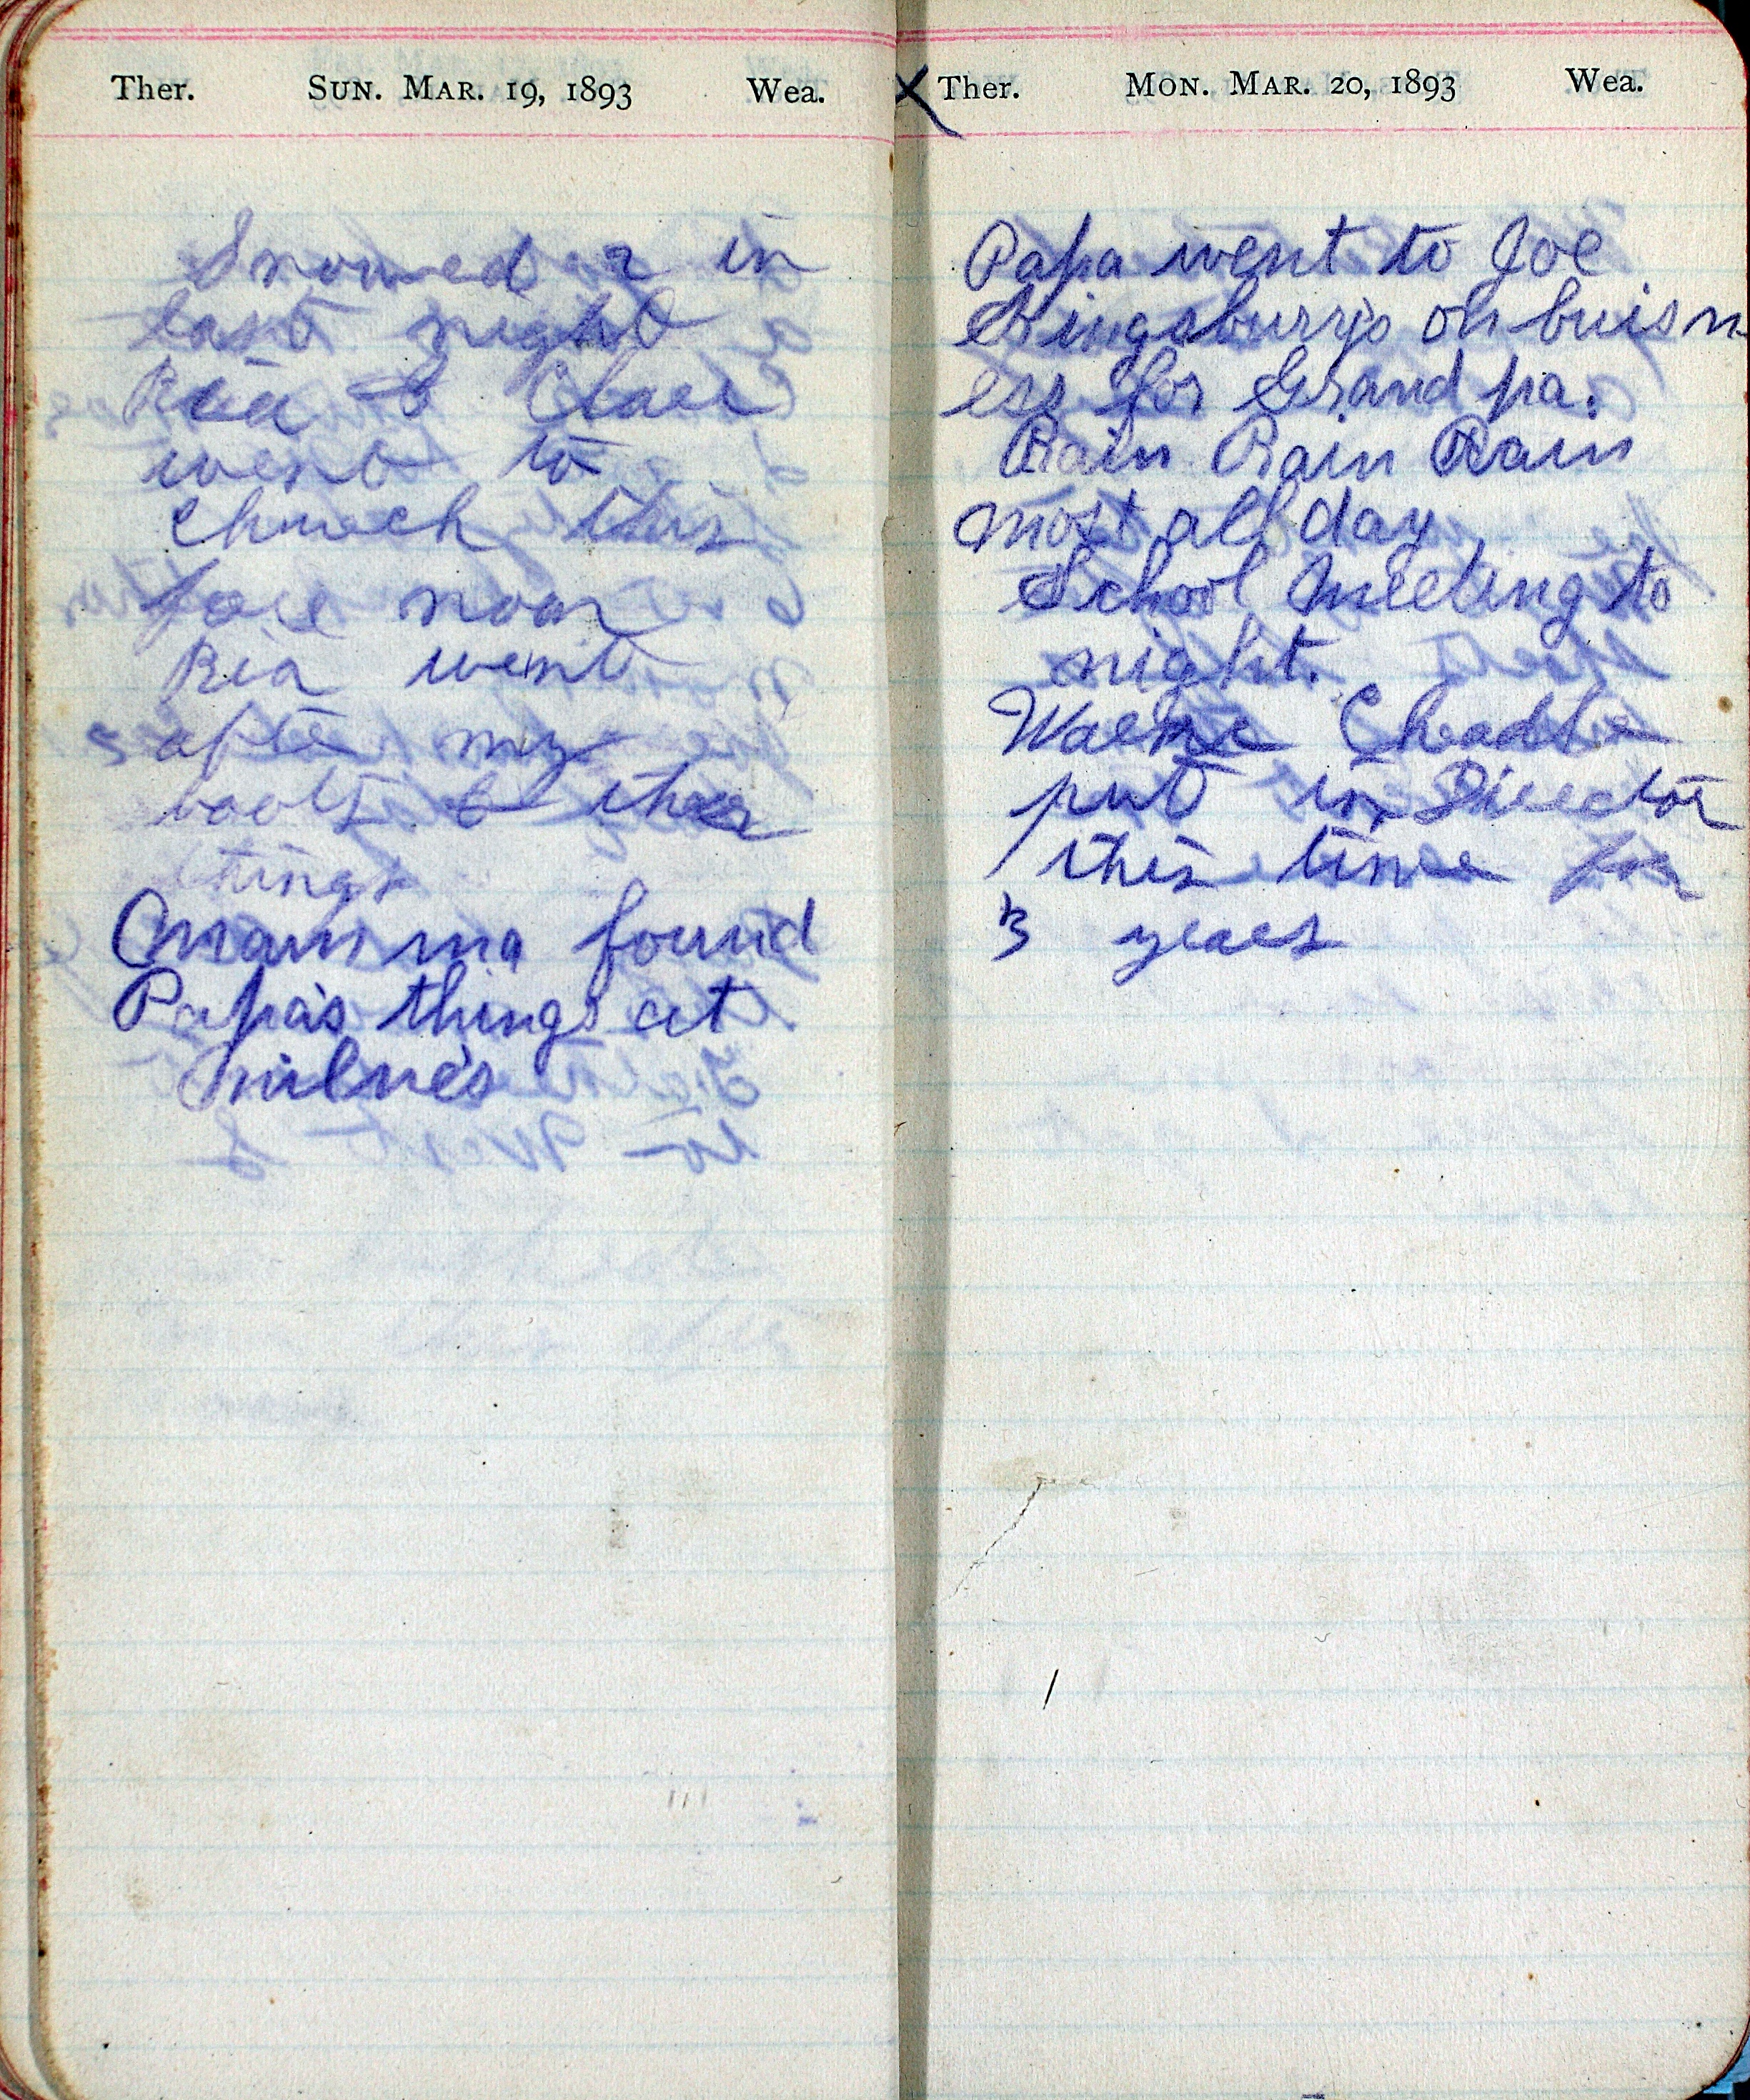 Ther. Sun. Mar. 19, 1893 Wea.
Snowed 2 in
last night
Ria & Clare
went to
church this
fore noon
Ria went
after my
boots & other
things
Mamma found
Papa's things at
Milne's
Ther. Mon. Mar. 20, 1893 Wea.
Papa went to Joe
Kingsburry's on buisn
ess for Grand pa.
Rain Rain Rain
most all day
School Meeting to
night.
Cheadle
put in Director
this time for
3 years